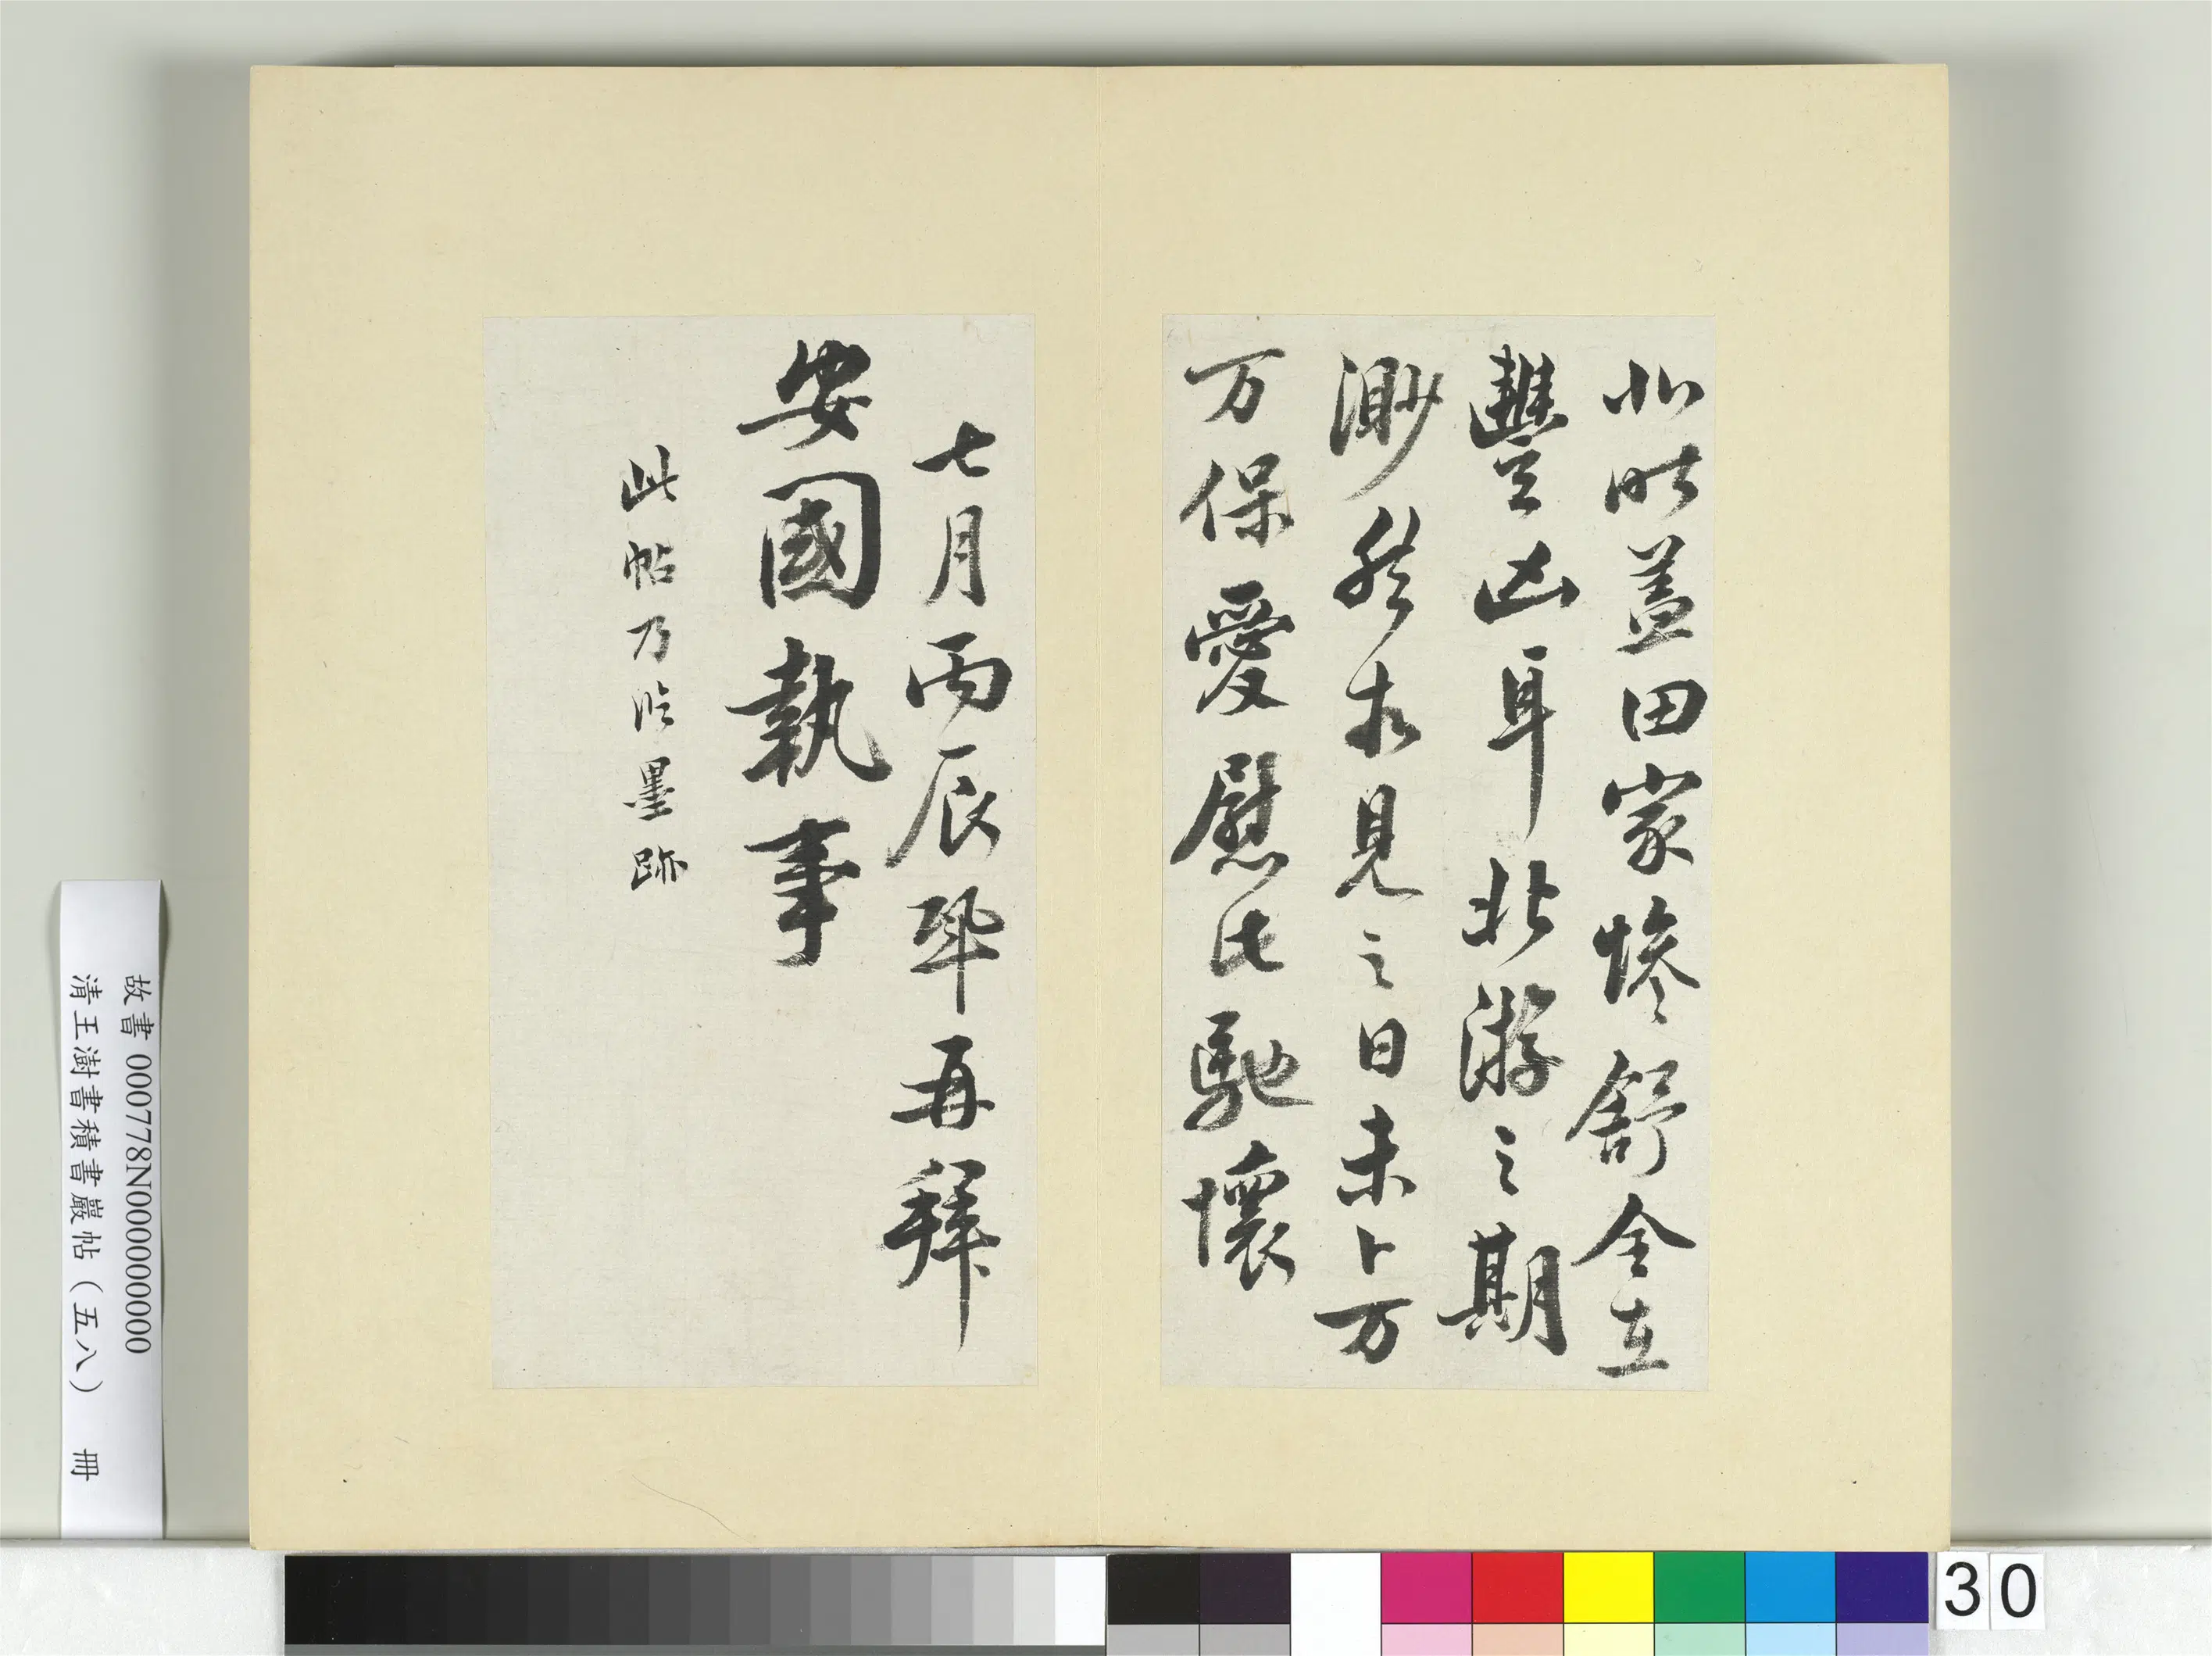 非昨蓋田家慘舒全在
豐凶耳北游之期
渺然求見之日未卜万
万保愛慰此馳懷
七月丙辰 再拜
安國執事
此帖乃臨墨跡
故書 000778N000000000
清王澍書積書巖帖(五八) 冊
30